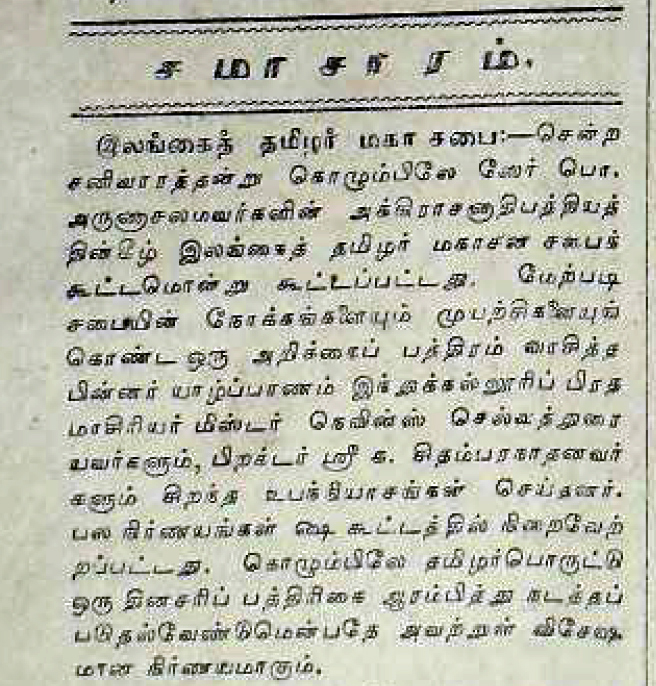 சமாசாரம்.
இலங்கைத் தமிழர் மகா சபை:—சென்ற
சனிவாரத்தன்று கொழும்பிலே ஸேர் பொ.
அருணாசலமவர்களின் அக்கிராசனாதிபத்தியத்
தின்கீழ் இலங்கைத் தமிழர் மகாசன சபைக்
கூட்டமொன்று கூட்டப்பட்டது. மேற்படி
சபையின் நோக்கங்களையும் முயற்சிகளையுங்
கொண்ட ஒரு அறிக்கைப் பத்திரம் வாசித்த
பின்னர் யாழ்ப்பாணம் இந்துக்கல்லூரிப் பிரத
மாசிரியர் மிஸ்டர் நெவின்ஸ் செல்வத்துரை
யவர்களும், பிறக்டர் ஸ்ரீ க. சிதம்பரநாதனவர்
களும் சிறந்த உபந்நியாசங்கள் செய்தனர்.
பல நிர்ணயங்கள் ஷை கூட்டத்தில் நிறைவேற்
றப்பட்டது. கொழும்பிலே தமிழர்பொருட்டு
ஒரு தினசரிப் பத்திரிகை ஆரம்பித்து நடத்தப்
படுதல்வேண்டுமென்பதே அவற்றுள் விசேஷ
மான நிர்ணயமாகும்.